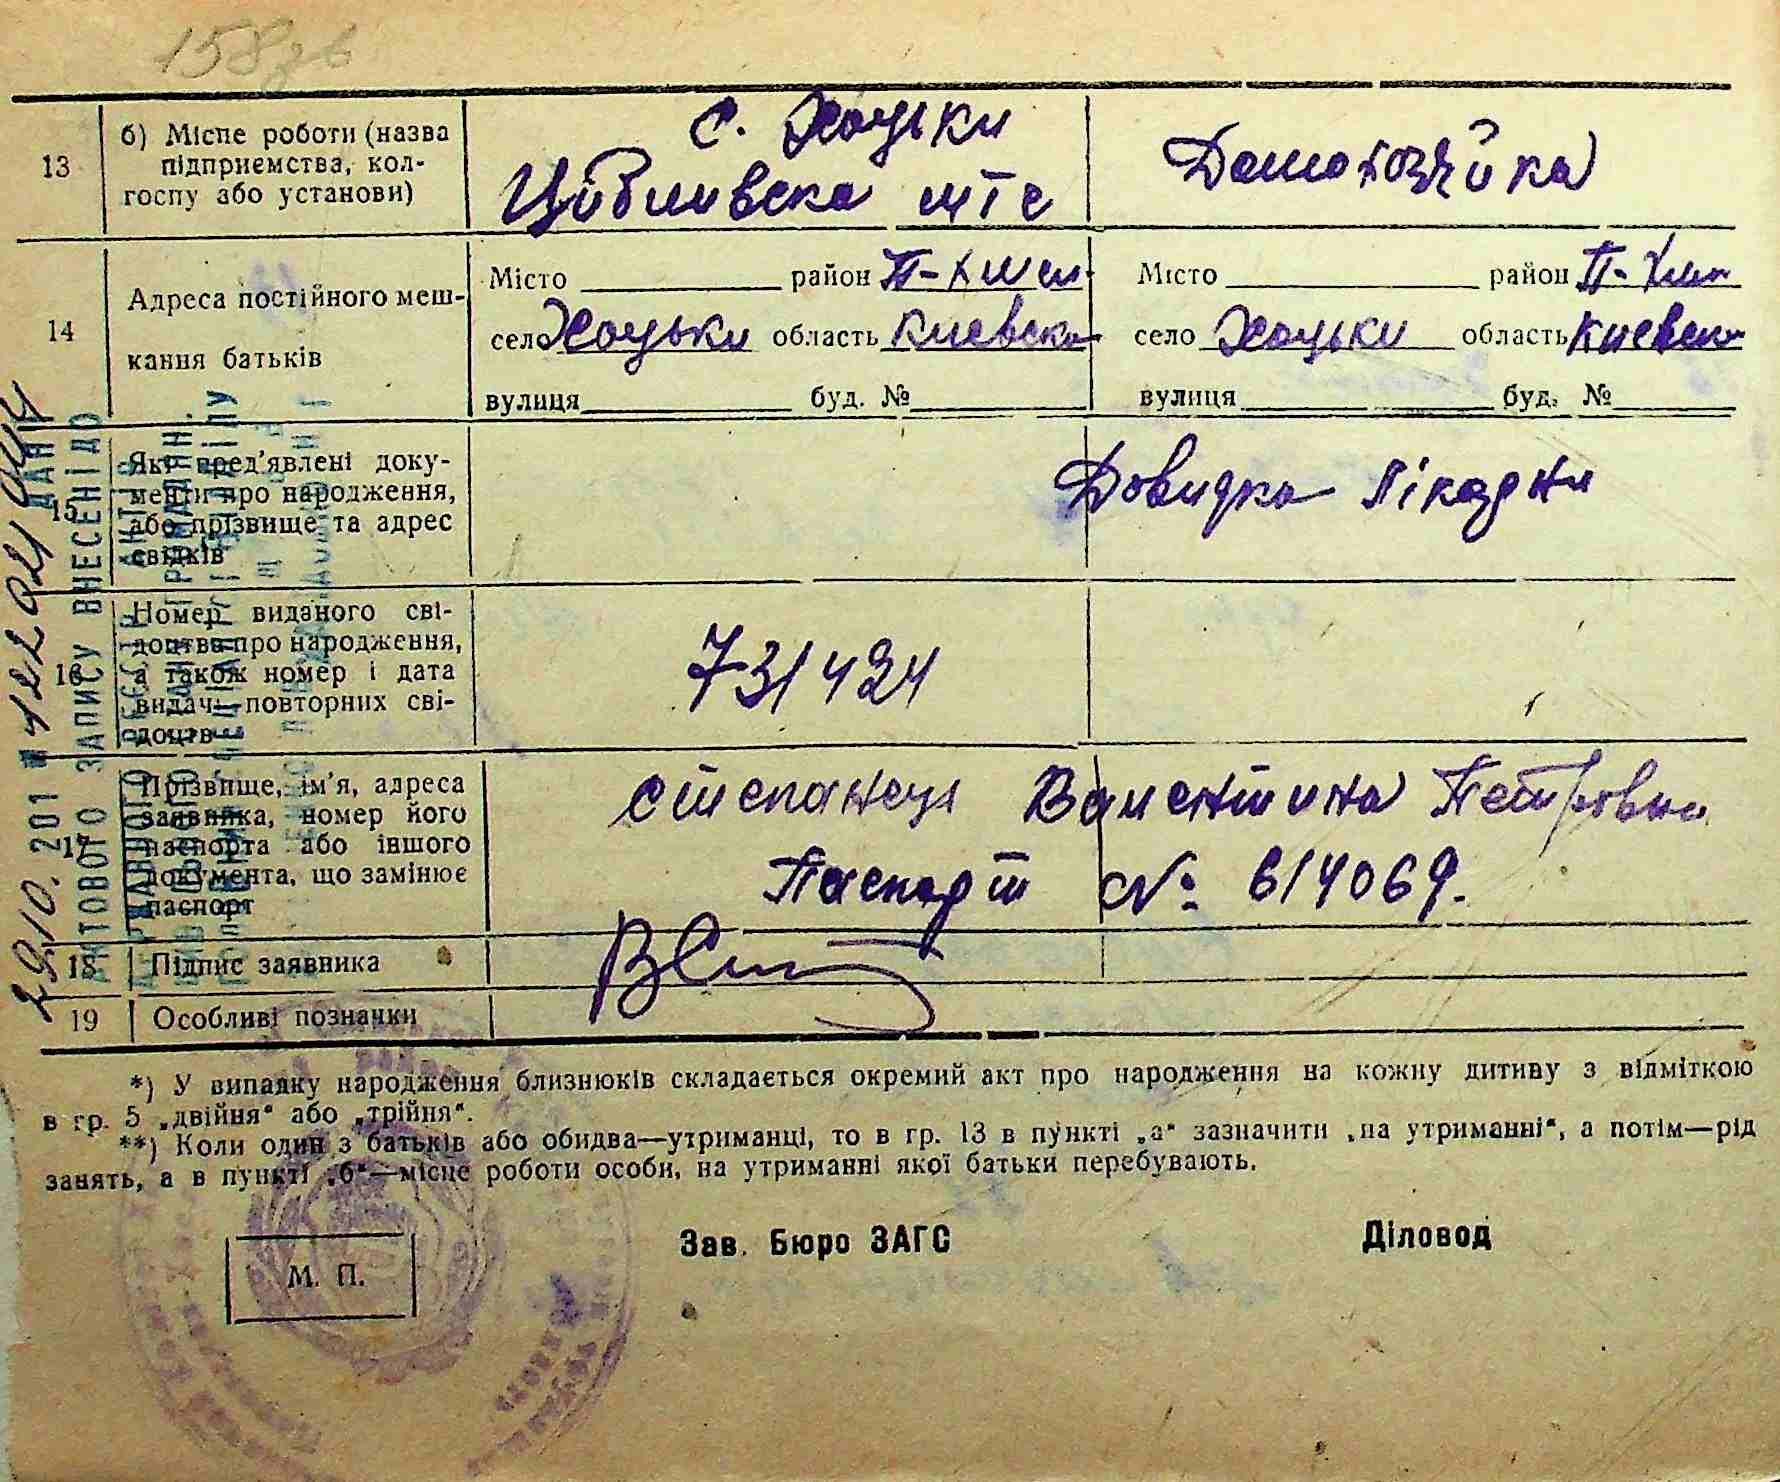 158зв
13 б) Місце роботи (назва підприємства, колгоспу або установи)
с. Хоцьки
Цибливска мтс
Домохозяйка
14 Адреса постійного мешкання батьків
Місто район П-Хмел.
село Хоцьки область Киевска
вулиця буд. №
Місто район П-Хм
село Хоцьки область Киевска
вулиця буд. №
15 Які пред'явлені документи про народження, або прізвище та адрес свідків
Довидка Лікарни
16 Номер виданого свідоцтва про народження, а також номер і дата видачі повторних свідоцтв
731424
17 Прізвище, ім'я, адреса заявника, номер його паспорта або іншого документа, що замінює паспорт
Степанець Валентина Петровна
Паспорт № 614069.
18 Підпис заявника
19 Особливі позначки
*) У випадку народження близнюків складається окремий акт про народження на кожну дитину з відміткою
в гр. 5 „двійня“ або „трійня“.
**) Коли один з батьків або обидва—утриманці, то в гр. 13 в пункті „а“ зазначити „на утриманні“, а потім—рід
занять, а в пункті „б“—місце роботи особи, на утриманні якої батьки перебувають.
Зав. Бюро ЗАГС
Діловод
М. П.
ДАНІ
АКТОВОГО ЗАПИСУ ВНЕСЕНІ ДО